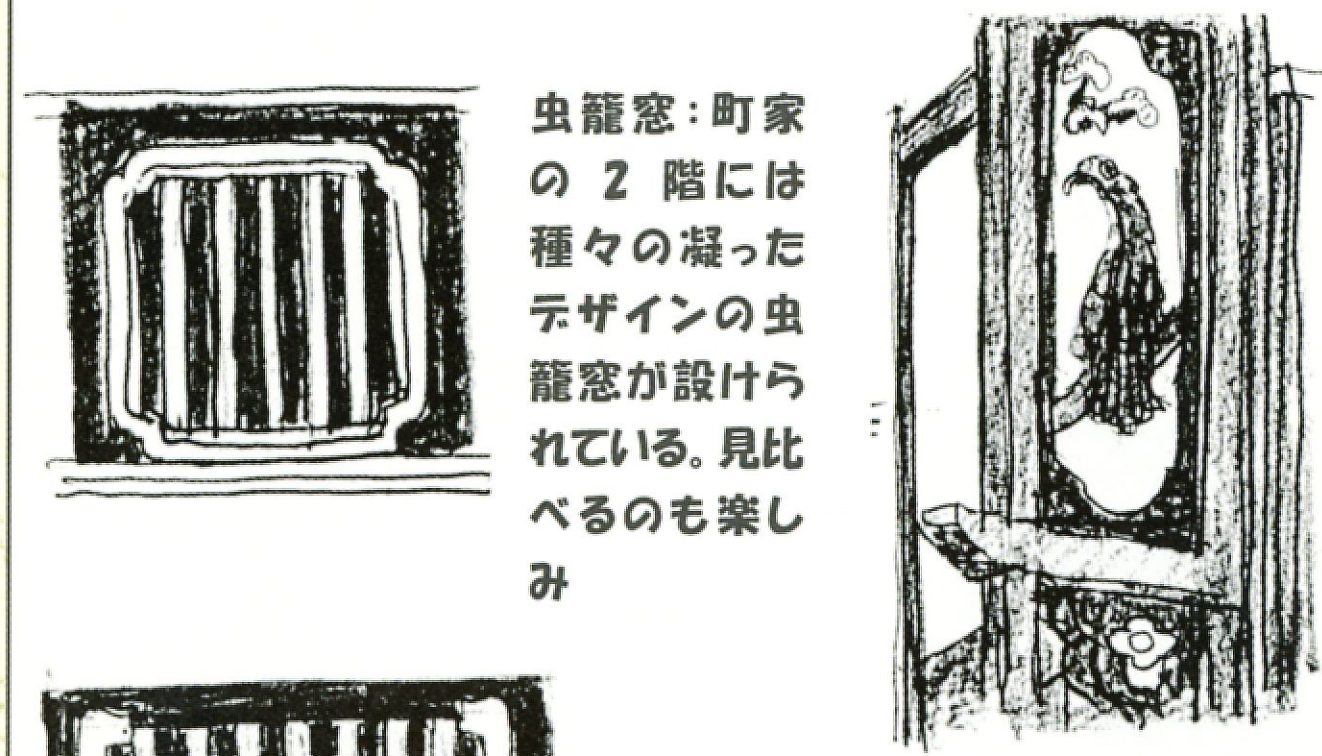 虫籠窓：町家
の 2 階には
種々の凝った
デザインの虫
籠窓が設けら
れている。見比
べるのも楽し
み